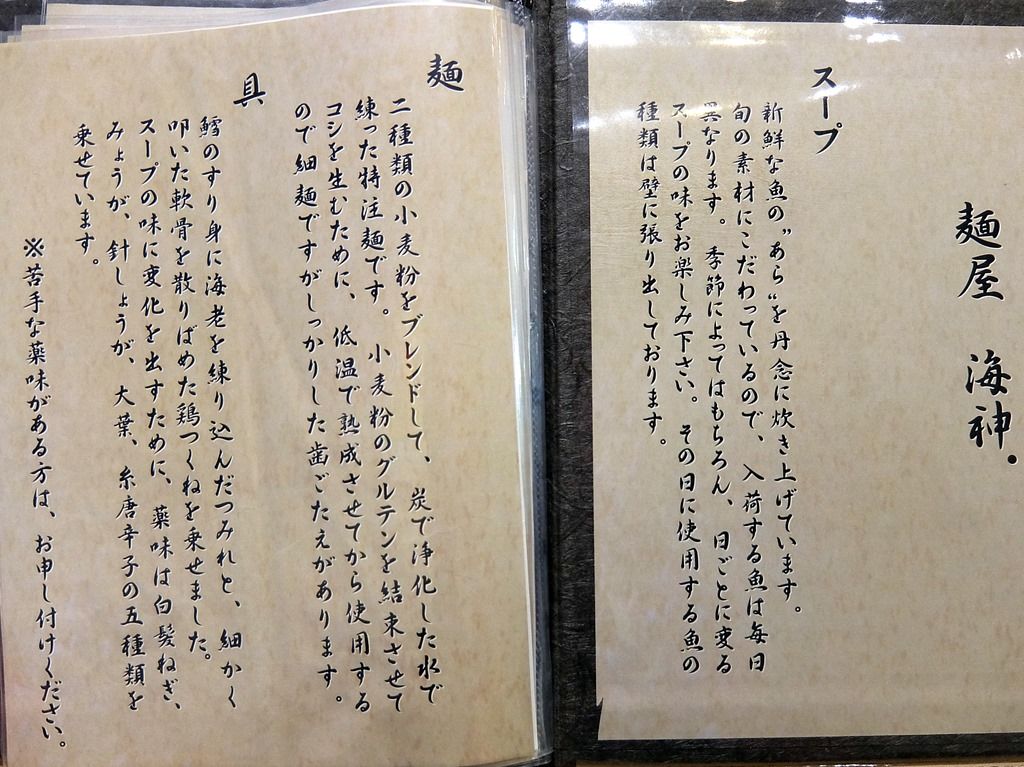 麺屋 海神.
スープ
新鮮な魚の〝あら〟を丹念に炊き上げています。
旬の素材にこだわっているので、入荷する魚は毎日
異なります。季節によってはもちろん、日ごとに変る
スープの味をお楽しみ下さい。その日に使用する魚の
種類は壁に張り出しております。
麺
二種類の小麦粉をブレンドして、炭で浄化した水で
練った特注麺です。小麦粉のグルテンを結束させて
コシを生むために、低温で熟成させてから使用する
ので細麺ですがしっかりした歯ごたえがあります。
具
鱈のすり身に海老を練り込んだつみれと、細かく
叩いた軟骨を散りばめた鶏つくねを乗せました。
スープの味に変化を出すために、薬味は白髪ねぎ、
みょうが、針しょうが、大葉、糸唐辛子の五種類を
乗せています。
※苦手な薬味がある方は、お申し付けください。